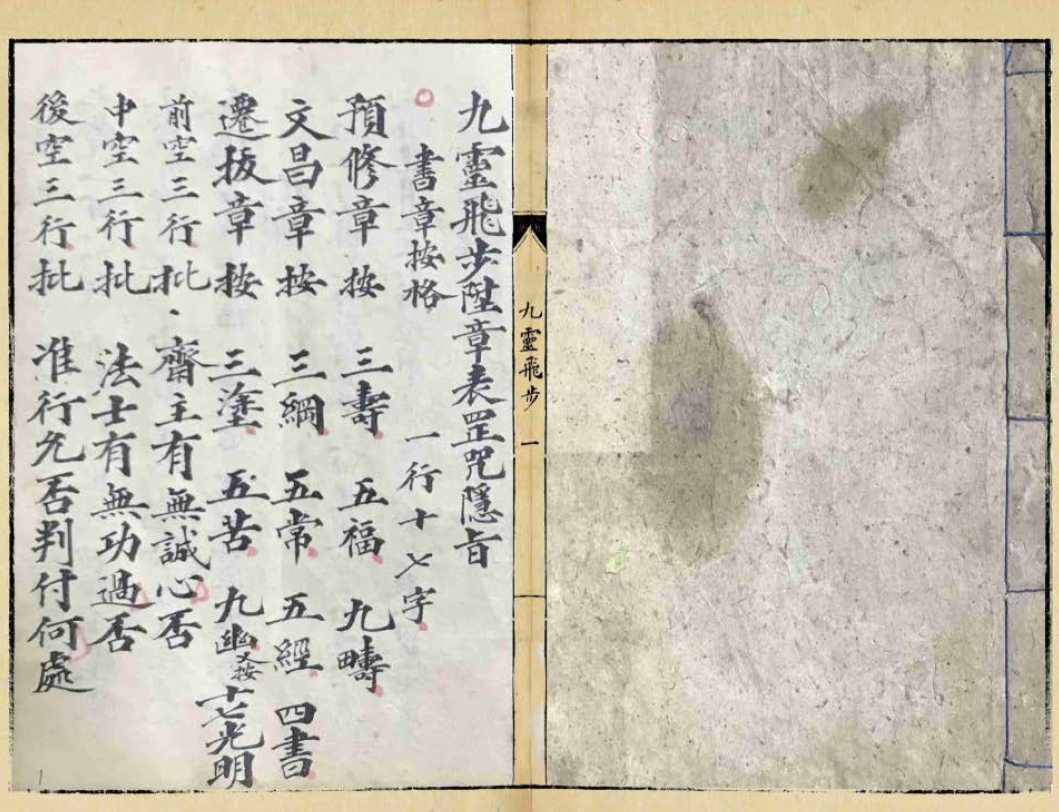 九靈飛步 一
九靈飛步陞章表罡咒隱旨
書章按格 一行十七字
預修章按 三壽 五福 九疇
文昌章按 三綱 五常 五經 四書
遷拔章按 三塗 五苦 九幽又按十七光明
前空三行批 齋主有無誠心否
中空三行批 法士有無功過否
後空三行批 准行允否判付何處